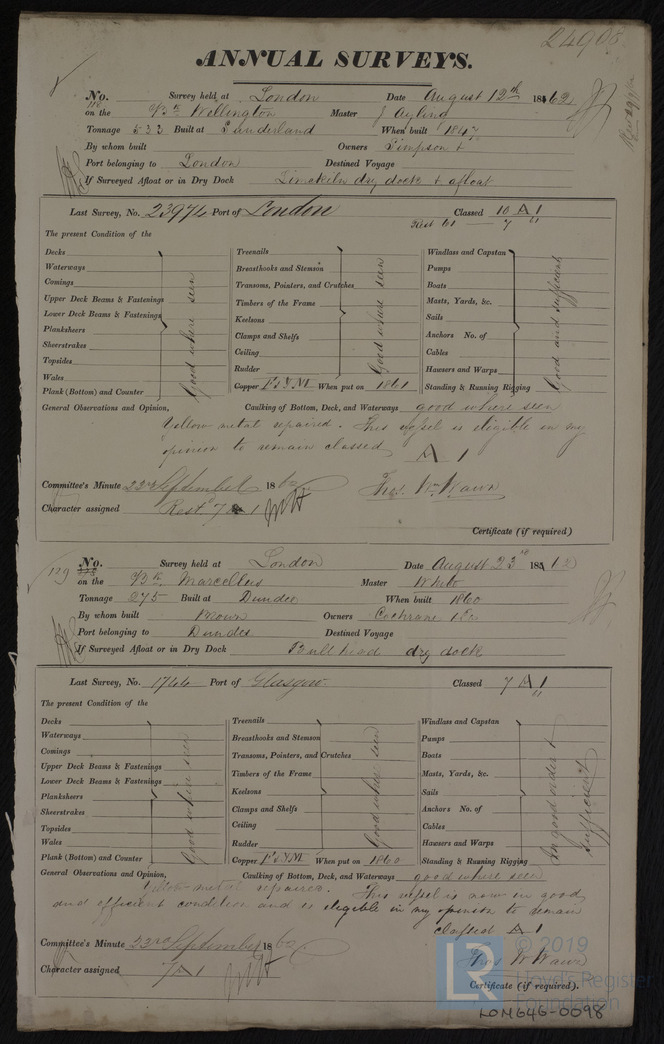 24908
ANNUAL SURVEYS.
No. Survey held at London Date August 12th 1862
on the Wellington Master J Ayling
Tonnage 533 Built at Sunderland When built 1847
By whom built Owners Simpson &
Port belonging to London Destined Voyage
If Surveyed Afloat or in Dry Dock Limekiln dry dock & afloat
Last Survey, No. 23974 Port of London Classed 10 A 1
Rest 61 7
The present Condition of the
Decks
Waterways
Comings
Upper Deck Beams & Fastenings
Lower Deck Beams & Fastenings
Planksheers
Sheerstrakes
Topsides
Wales
Plank (Bottom) and Counter
Good where seen
Treenails
Breasthooks and Stemson
Transoms, Pointers, and Crutches
Timbers of the Frame
Keelsons
Clamps and Shelfs
Ceiling
Rudder
Copper F & YM When put on 1861
Good where seen
Windlass and Capstan
Pumps
Boats
Masts, Yards, &c.
Sails
Anchors No. of
Cables
Hawsers and Warps
Standing & Running Rigging
Good and sufficient
General Observations and Opinion, Caulking of Bottom, Deck, and Waterways good where seen
Yellow metal repaired. This vessel is eligible in my
opinion to remain classed A 1
Committee's Minute 23rd September 186
Character assigned Rest. 7 A 1
Thos. Wm. Wawn
Certificate (if required)
129 No. Survey held at London Date August 23rd 186
on the Bk. Marcellus Master White
Tonnage 275 Built at Dundee When built 1860
By whom built Brown Owners Cochrane &c
Port belonging to Dundee Destined Voyage
If Surveyed Afloat or in Dry Dock Bull head dry dock
Last Survey, No. 1744 Port of Glasgow. Classed 7 A 1
The present Condition of the
Decks
Waterways
Comings
Upper Deck Beams & Fastenings
Lower Deck Beams & Fastenings
Planksheers
Sheerstrakes
Topsides
Wales
Plank (Bottom) and Counter
Good where seen
Treenails
Breasthooks and Stemson
Transoms, Pointers, and Crutches
Timbers of the Frame
Keelsons
Clamps and Shelfs
Ceiling
Rudder
Copper F & YM When put on 1860
Good where seen
Windlass and Capstan
Pumps
Boats
Masts, Yards, &c.
Sails
Anchors No. of
Cables
Hawsers and Warps
Standing & Running Rigging
In good order &
sufficient
General Observations and Opinion, Caulking of Bottom, Deck, and Waterways good where seen
Yellow metal repaired. This vessel is now in good
and efficient condition and is eligible in my opinion to remain
classed A 1
Committee's Minute 23rd September 186
Character assigned 7 A 1
Thos W Wawn
Certificate (if required).
© 2019
LR Lloyd's Register
Foundation
LON646-0098